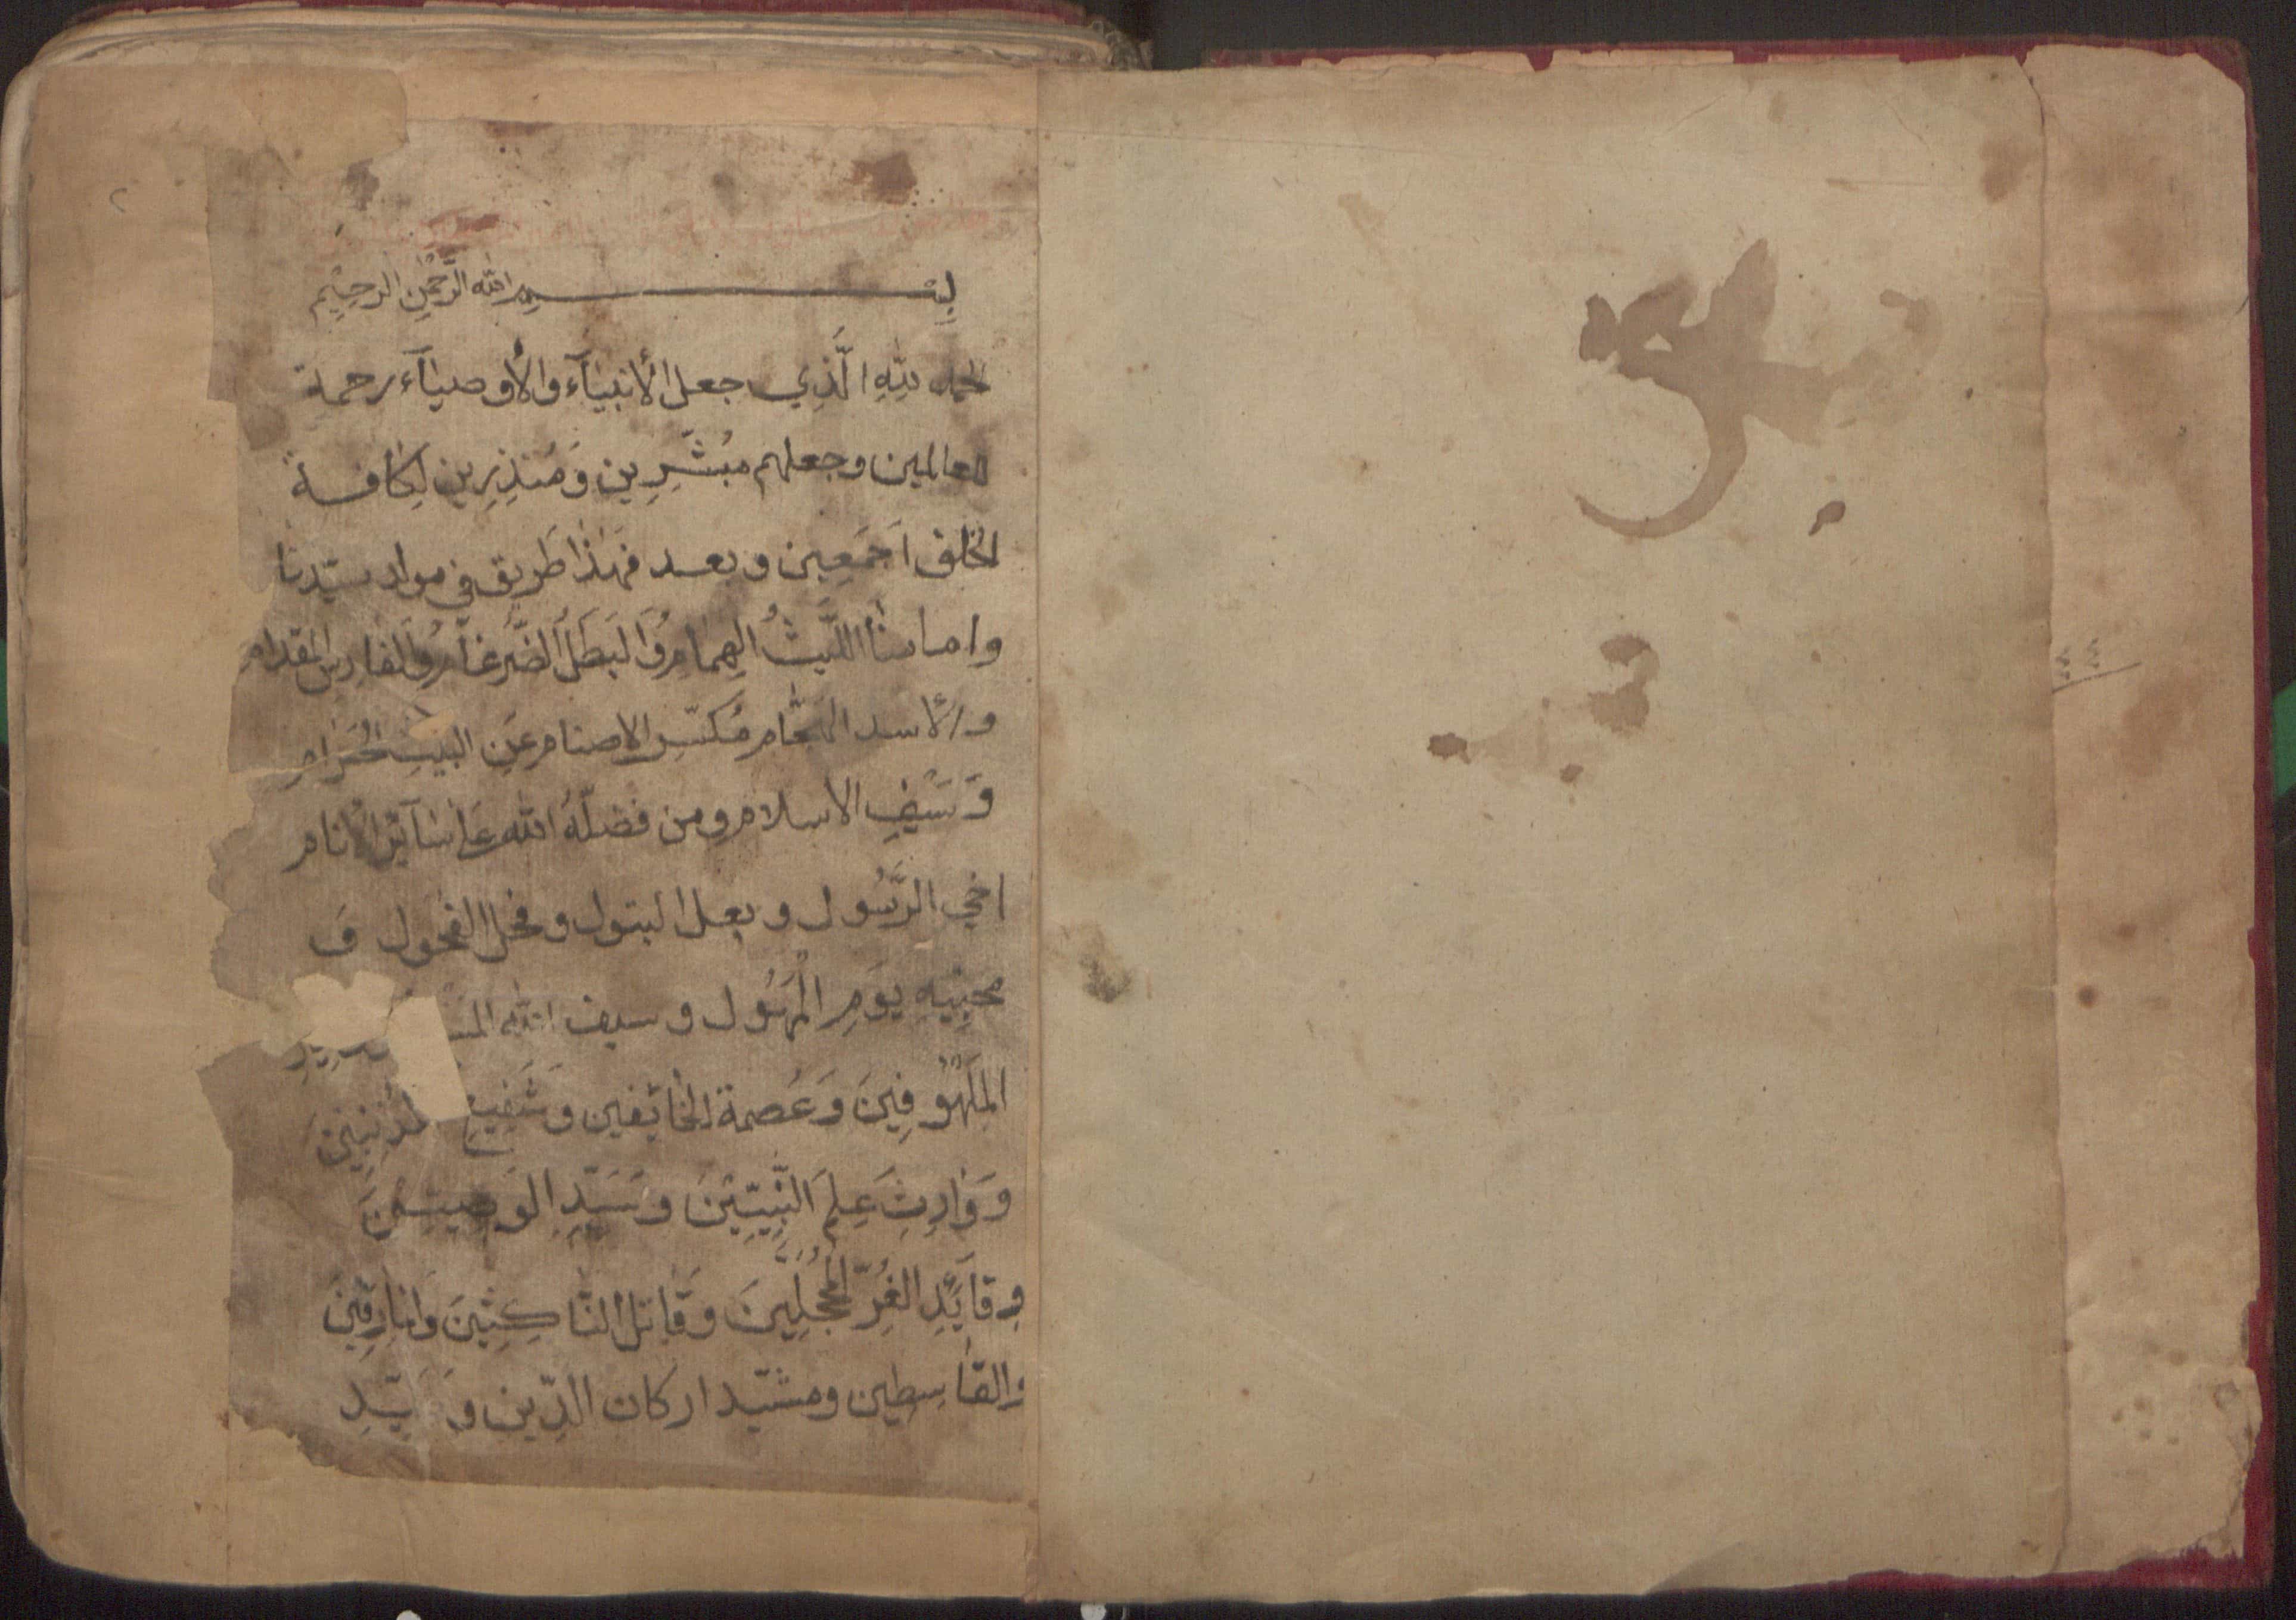 بِسـمِ الله الرَّحْمٰنِ الرحِيْمِ
الحمد لِلّٰهِ الَّذِي جعل الأنبيآء والأوصيآء رحمة
للعالمين وجعلهم مبُشّرِين وَمُنذِرِين لِكافة
الخلق اَجمَعِين وبعد فهٰذا طَريق في مولد سيّدنا
وامامنا اللَّيثُ الهِمام وَالبَطَلُ الضّرغام والفارس المقدام
والأسد الهجّام مُكسّر الاصنام عَنِ البيتِ الحَرامِ
وَسَيْفِ الاسلام ومن فضلّهُ الله عَلى سآئر الانام
اخي الرَّسُول وبعل البتول وفحل الفحول وَ
محبّيهِ يوَمِ المهَُول وسيف الله
الملَهُْوفِينَ وَعَصمة الخائفين وَشَفِيعِ المذنبِينَ
وَوَارِثِ عِلمَ النَّبِيّيْنَ وسَيّدِ الوَصِيّينَ
وقآئدِ الغُرّ المُحَجّلِينَ وَقَاتل النَّاكِثِينَ وَالمارقينَ
والقاسِطين ومشيّد اركان الدِّين وَ